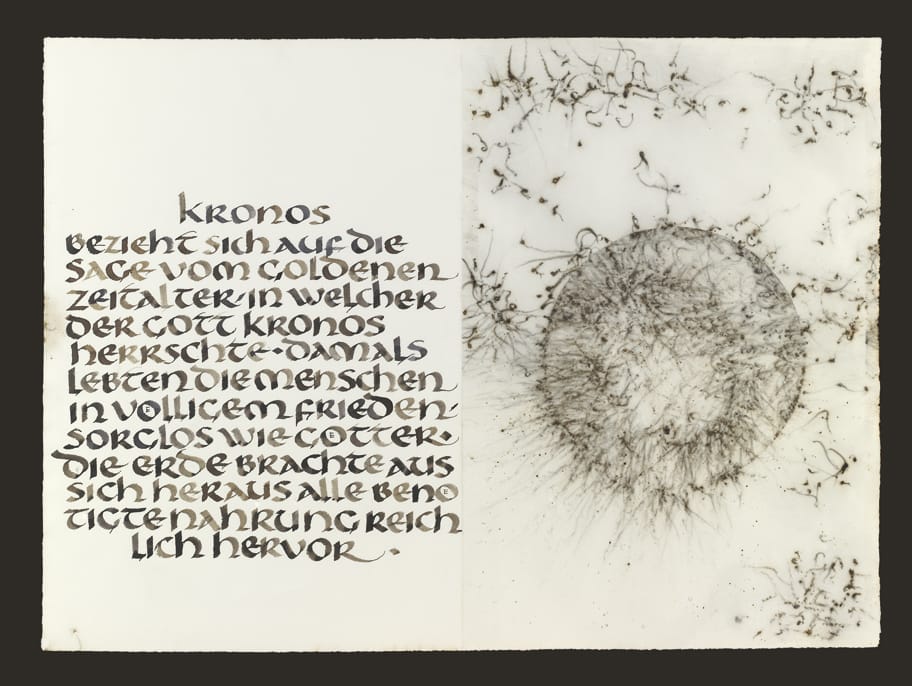 kronos
Bezieht sich auf die
Sage vom Goldenen
Zeitalter·in welcher
der Gott kronos
herrschte·damals
lebten die menschen
in völligem frieden·
sorglos wie Götter·
die erde brachte aus
sich heraus alle benö
tigte nahrung reich
lich hervor·